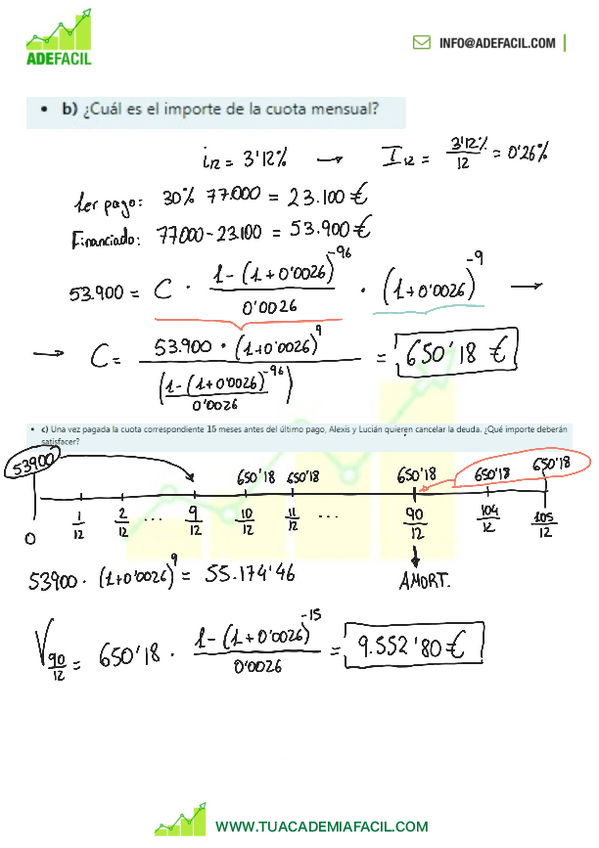 ADEFACIL
INFO@ADEFACIL.COM
• b) ¿Cuál es el importe de la cuota mensual?
i12 = 3'12% → I12 = 3'12%/12 = 0'26%
1er pago: 30% 77.000 = 23.100 €
Financiado: 77000 - 23.100 = 53.900 €
53.900 = C · (1-(1+0'0026)^-96)/0'0026 · (1+0'0026)^-9 →
→ C = 53.900 · (1+0'0026)^9 / ((1-(1+0'0026)^-96)/0'0026) = 650'18 €
• c) Una vez pagada la cuota correspondiente 15 meses antes del último pago, Alexis y Lucián quieren cancelar la deuda. ¿Qué importe deberán
satisfacer?
53900 650'18 650'18 650'18 650'18 650'18
0 1/12 2/12 ... 9/12 10/12 11/12 ... 90/12 104/12 105/12
53900 · (1+0'0026)^9 = 55.174'46
AMORT.
V90/12 = 650'18 · (1-(1+0'0026)^-15)/0'0026 = 9.552'80 €
WWW.TUACADEMIAFACIL.COM